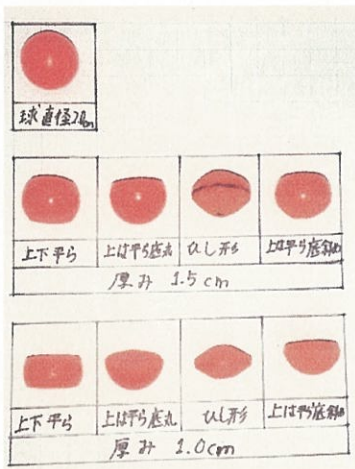 球直径2.0cm
上下平ら 上は平ら底丸 ひし形 上は平ら底斜め
厚み 1.5cm
上下平ら 上は平ら底丸 ひし形 上は平ら底斜め
厚み 1.0cm